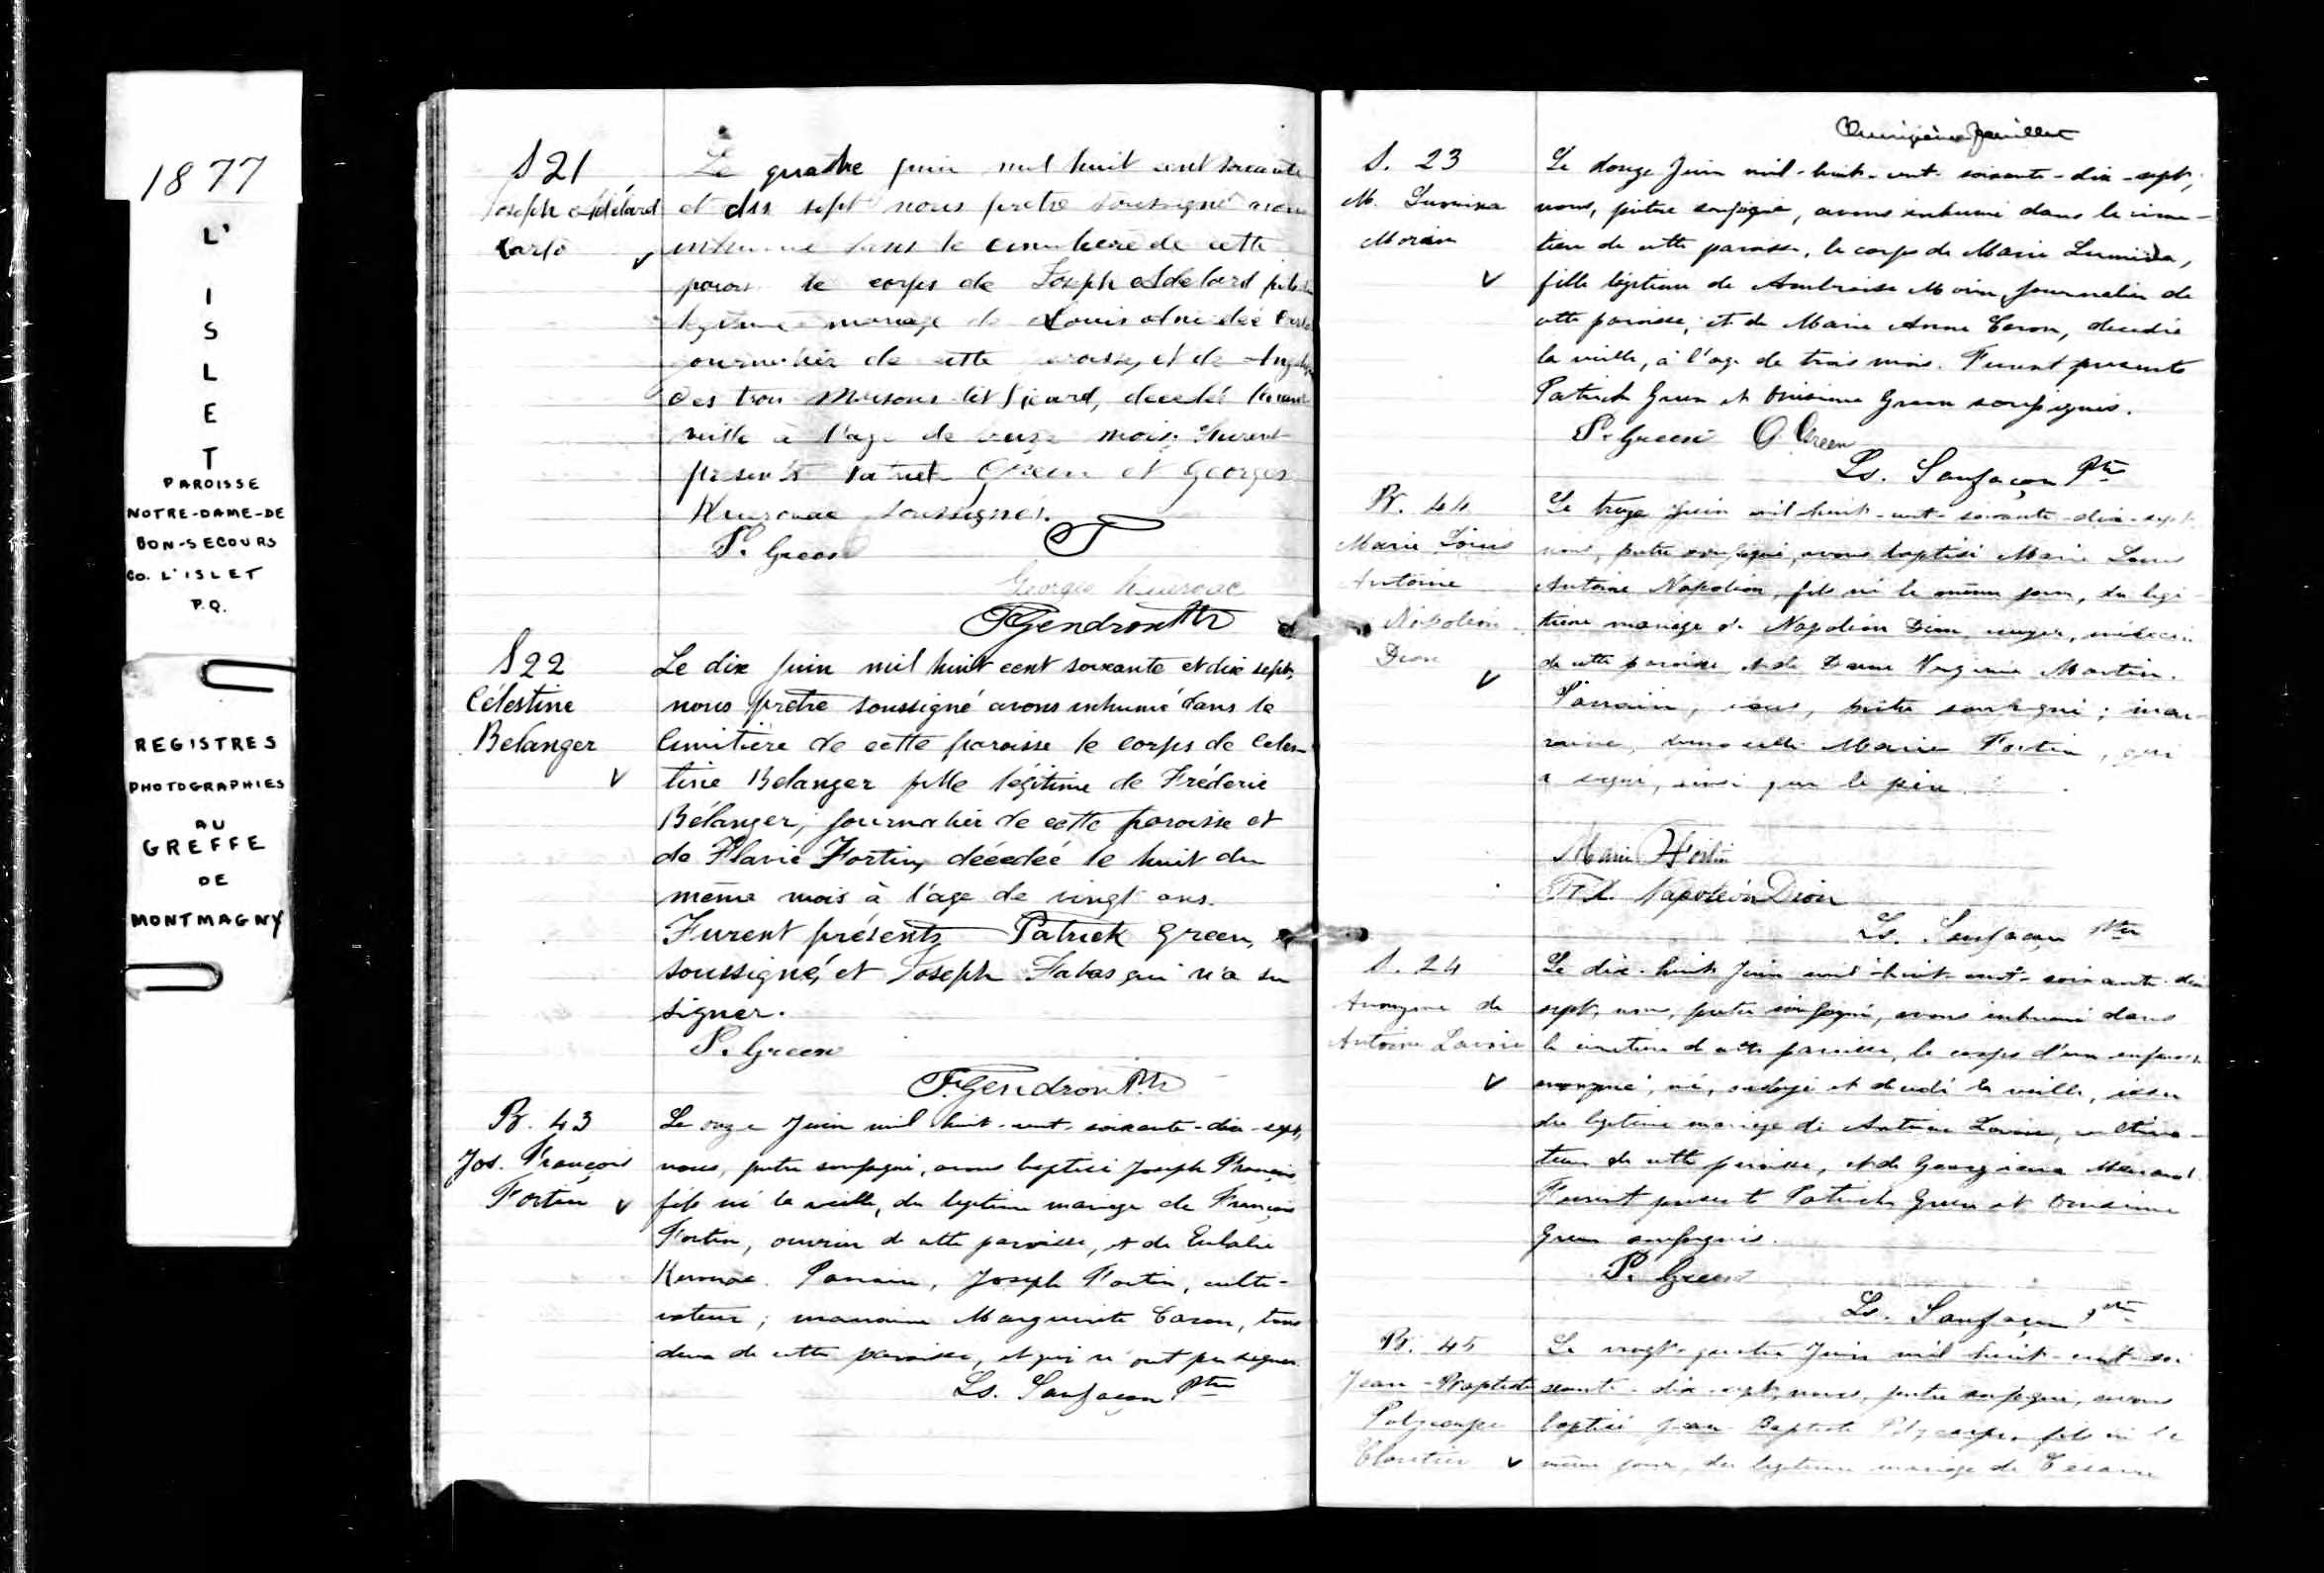 1877
L'
I
S
L
E
T
PAROISSE
NOTRE-DAME-DE
BON-SECOURS
Co. L'ISLET
P.Q.
REGISTRES
PHOTOGRAPHIES
AU
GREFFE
DE
MONTMAGNY
S 21
Joseph Adélard
Le quatre juin mil huit cent soixante
et dix sept nous pretre soussigné avons
inhumé dans le cimetiere de cette
le corps de Joseph Adelard fils du
legitime mariage de Louis
journalier de cette paroisse, et de
Des trois Maisons dit Picard, decedé
veille à l'age de mois. Furent
presents Patrick Green et Georges
Kuerouac soussignés.
P. Green
Georges Kuerouac
F Gendron Ptr
S 22
Célestine
Belanger
Le dix juin mil huit cent soixante et dix sept,
nous pretre soussigné avons inhumé dans le
Cimitière de cette paroisse le corps de Céles-
tine Belanger fille légitime de Fréderic
Bélanger, journalier de cette paroisse et
de Flavie Fortin, décédée le huit du
même mois à l'age de vingt ans.
Furent présents Patrick Green,
soussigné, et Joseph Fabas qui n'a su
signer.
P. Green
F. Gendron Ptr
B. 43
Jos. François
Fortin
Le onze Juin mil-huit-cent-soixante-dix-sept,
nous, prêtre soussigné, avons baptisé Joseph François
fils né la veille, du légitime mariage de François
Fortin, ouvrier de cette paroisse, et de Eulalie
Kerouac. Parrain, Joseph Fortin, culti-
vateur; marraine Marguerite Caron, tous
deux de cette paroisse, et qui n'ont pu signer.
Ls. Sanfaçon Ptre
feuillet
S. 23
M. Lumina
Morin
Le douze Juin mil-huit-cent-soixante-dix-sept,
nous, prêtre soussigné, avons inhumé dans le cime-
tière de cette paroisse, le corps de Marie Lumina,
fille légitime de Ambroise Morin, journalier de
cette paroisse, et de Marie Anne Caron, decedée
la veille, à l'age de trois mois. Furent presents
Patrick Green et Onisime Green soussignés.
P. Green O Green
Ls. Sanfaçon Ptre
B. 44
Marie Louis
Antoine
Napoléon
Dion
Le treize Juin mil-huit-cent-soixante-dix-sept
nous, prêtre soussigné, avons baptisé Marie Louis
Antoine Napoléon, fils né le même jour, du légi-
time mariage de Napoléon Dion, ecuyer, médecin
de cette paroisse, et de Dame Virginie Martin.
Parrain, nous, prêtre soussigné; mar-
raine, demoiselle Marie Fortin, qui
a signé, ainsi que le père.
Marie Fortin
Napoléon Dion
Ls. Sanfaçon Ptre
S. 24
Anonyme de
Antoine Lavoie
Le dix-huit Juin mil-huit-cent-soixante-dix
sept, nous, prêtre soussigné, avons inhumé dans
le cimetière de cette paroisse, le corps d'un enfant
anonyme, né, ondoyé et decedé la veille, issu
du légitime mariage de Antoine Lavoie, cultiva-
teur de cette paroisse, et de Georgiana
Furent presents Patrick Green et Onisime
Green soussignés.
P. Green
Ls. Sanfaçon Ptre
B. 45
Jean-Baptiste
Polycarpe
Cloutier
Le vingt-quatre Juin mil-huit-cent-soi-
xante-dix-sept, nous, prêtre soussigné, avons
baptisé Jean Baptiste Polycarpe, fils né le
même jour, du légitime mariage de Césaire